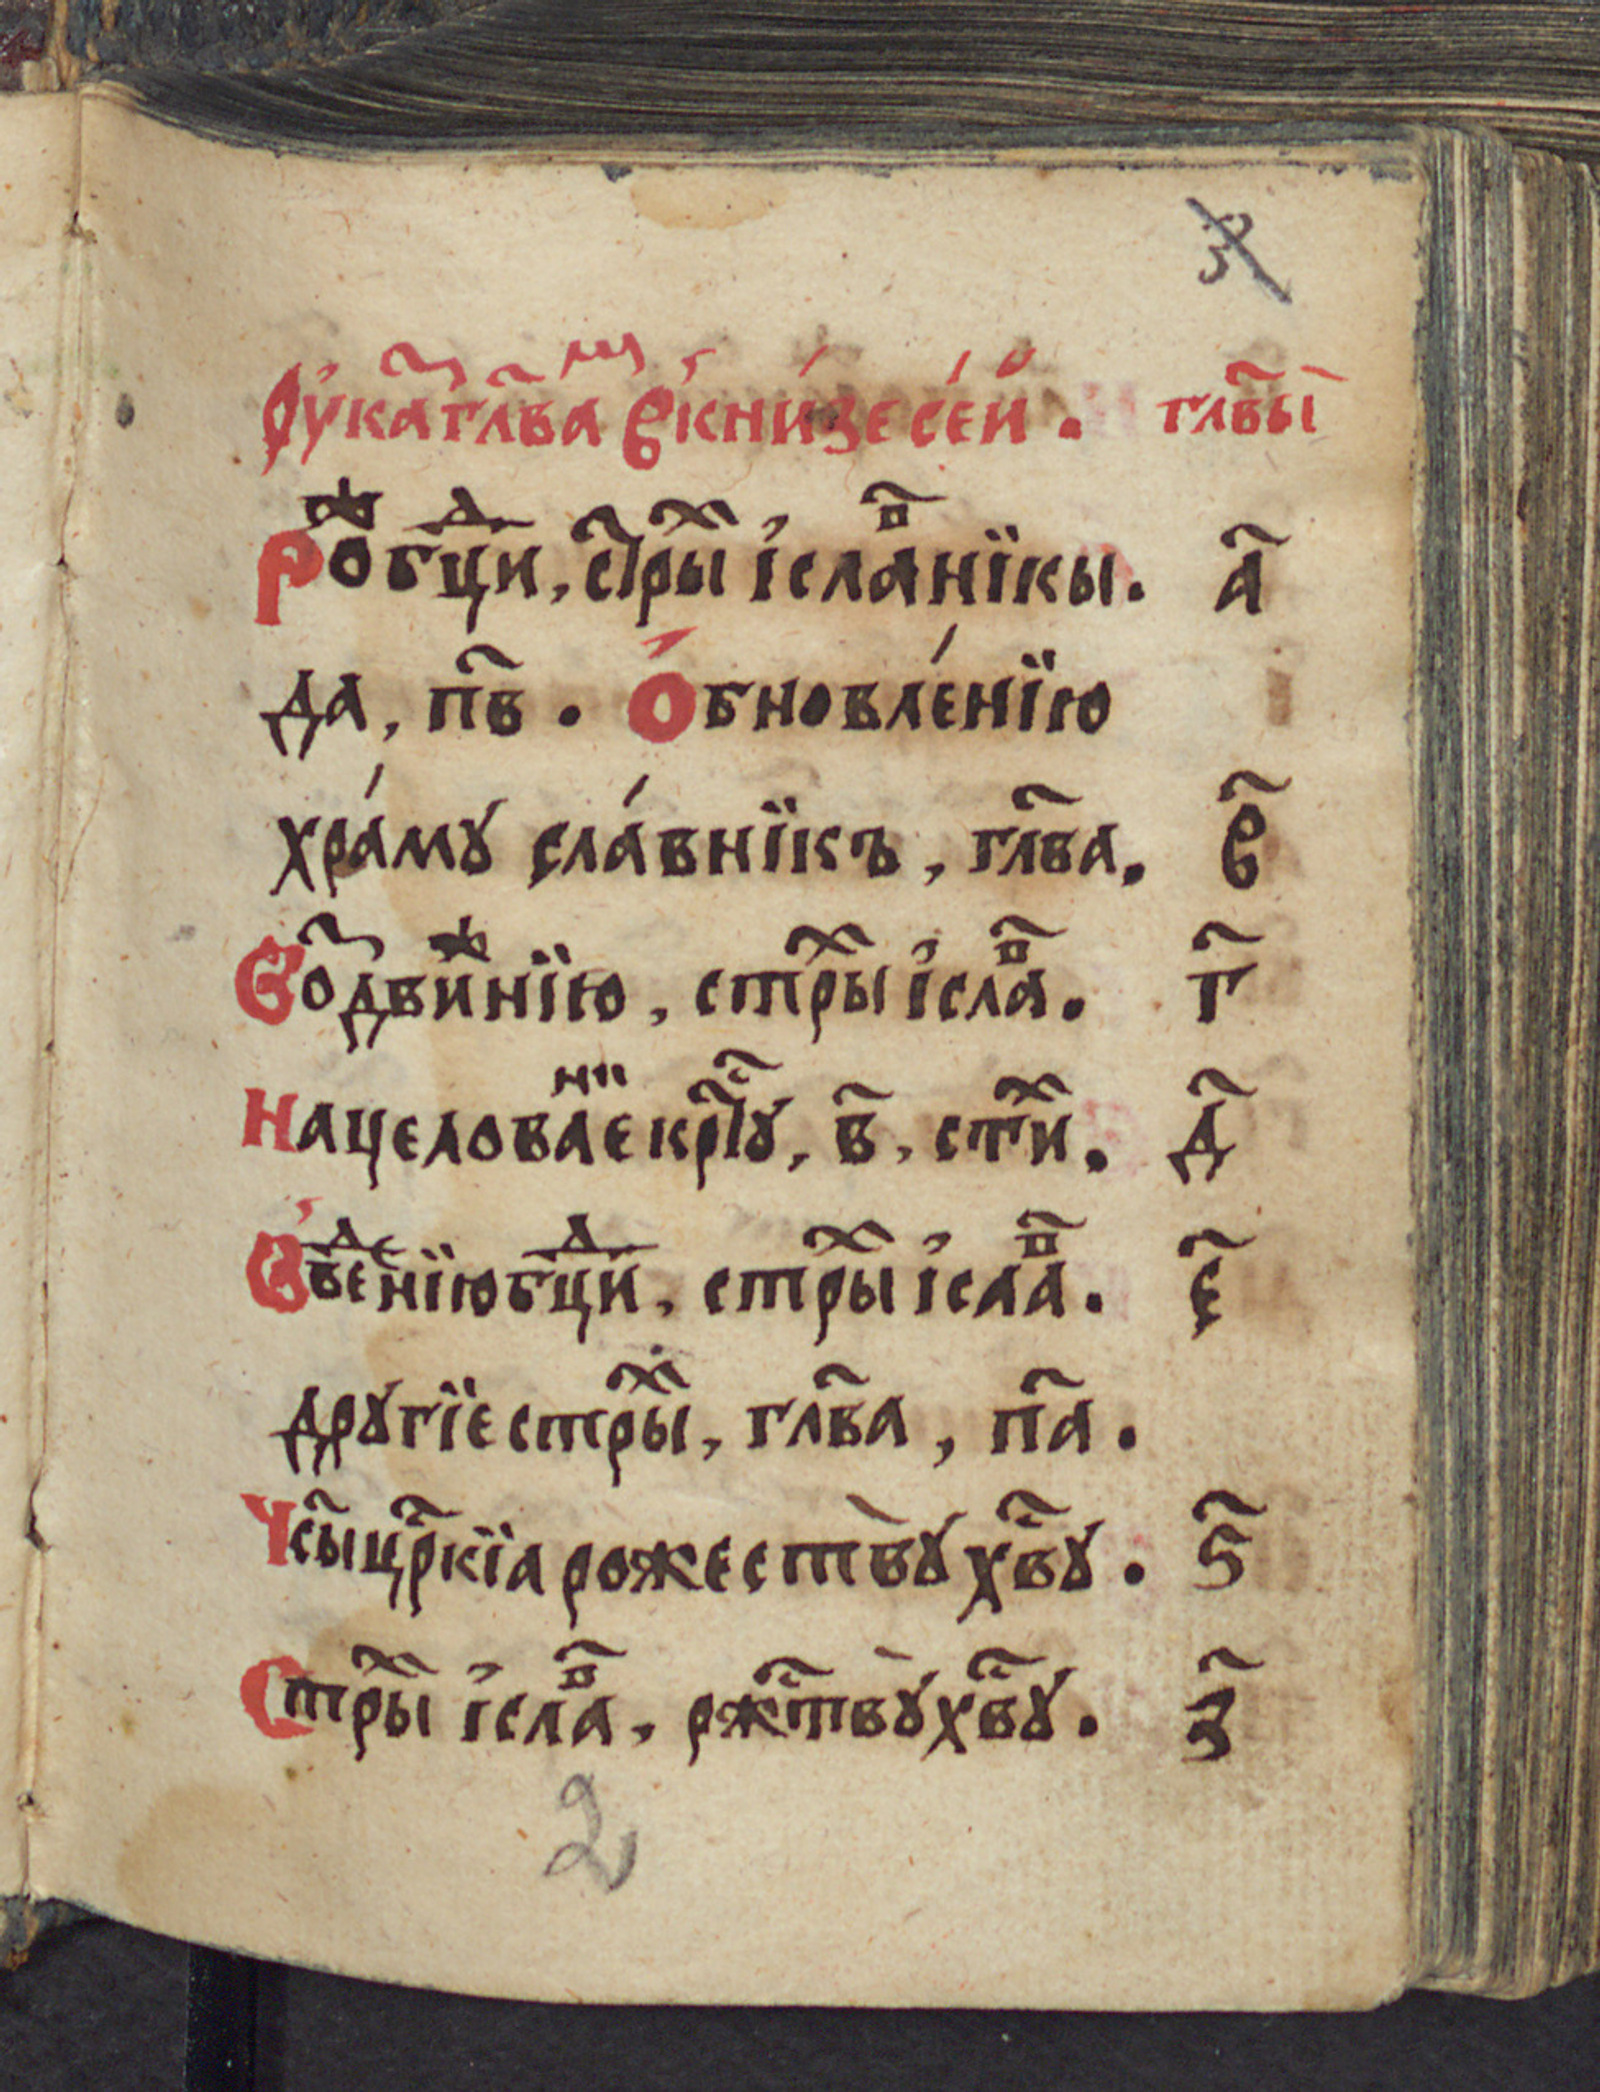 Ѹ҆ка҃ глвамъ в҆кни́зе се́й . гл҃вы
Рожⷣбцди, ст҃рыⷯ і҆ слаⷡнїкы. а҃
да, пв҃ . О҆бновле́нїю
хра́му сла́внїкъ, гл҃ва. в҃
Воⷥдвиⷤнїю, стрыⷯ і҆ слаⷡ. г҃
Нацеловаⷩїе крⷭ҇ту, в҃, стиⷯ. д҃
Введеⷣнїю бц҃ди, стрыⷯ і҆ слаⷡ. є҃
другїе стрыⷯ, гл҃ва, па҃.
Чсы҃ црⷭ҇кїа рожествꙋ̀ хв҃у. ѕ҃
Стрыⷯ і҆ слаⷡ, ржⷭ҇твꙋ̀ хвⷭ҇у. з҃
2